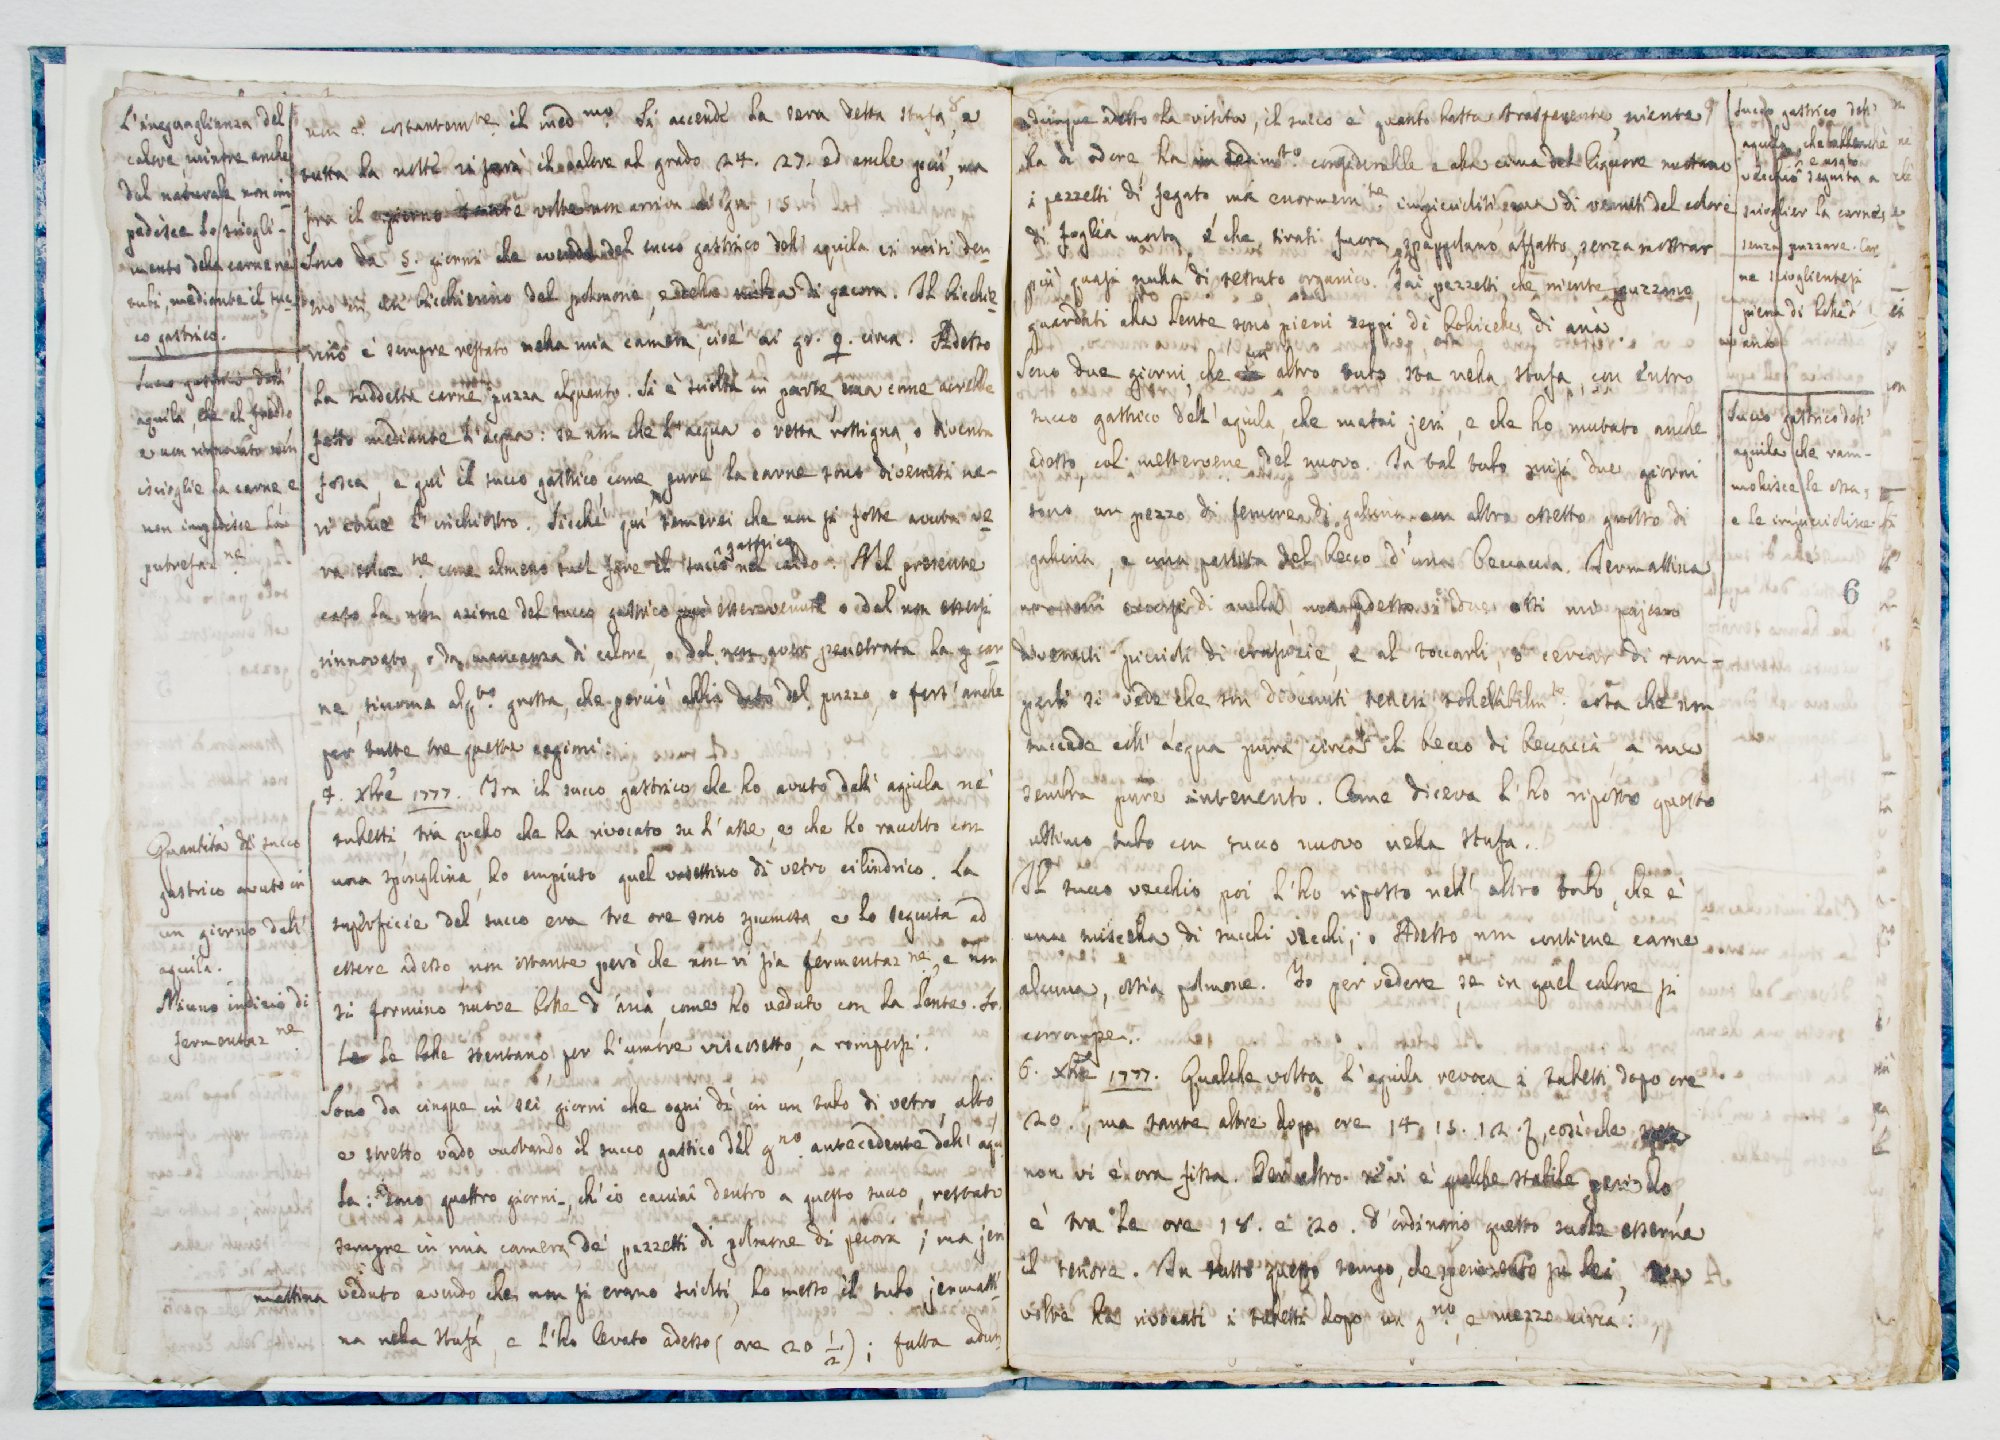 L'ineguaglianza del
calore, mentre anche
del naturale non im
pedisce lo sciogli-
mento della carne nei
tubi, mediante il suc-
co gastrico.
Succo gastrico dell'
aquila, che al freddo
e non rinnovato non
iscioglie la carne e
non impedisce la
putrefaz.ne
Quantità di succo
gastrico avuto in
un giorno dall'
aquila.
Niuno indizio di
fermentaz.ne
non è costantem.te il med.mo Si accende la sera detta stufa, e
tutta la notte vi sarà il calore al grado 24. 27. ed anche più, ma
fra il giorno volte non arriva ai gr. 15
Sono da 5. giorni che del succo gastrico dell'aquila vi misi den
tro in un bicchierino del polmone, e della milza di pecora. Il bicchie
rino è sempre restato nella mia camera, cioè ai gr. 9. circa. Adesso
la suddetta carne puzza alquanto. Si è sciolta in parte ma come avrebbe
fatto mediante l'acqua: se non che l'acqua o resta rossigna, o diventa
fosca, e qui il succo gastrico come pure la carne sono divenuti ne-
ri come l'inchiostro. Sicchè qui temerei che non si fosse avuta ve
ra soluz.ne come almeno suol fare il succo gastrico nel caldo. Nel presente
caso la non azione del succo gastrico può esser venuta o dal non essersi
rinnovato, o da mancanza di calore, o dal non aver penetrata la car
ne, siccome alq.to grossa, che perciò abbia dato del puzzo, o fors'anche
per tutte tre queste cagioni.
7. Xbre 1777. Fra il succo gastrico che ho avuto dall'aquila ne'
tubetti, tra quello che ha rivocato su l'asse, e che ho raccolto con
una spunghina, ho empiuto quel vasettino di vetro cilindrico. La
superficie del succo era tre ore sono spumosa, e lo seguita ad
essere adesso, non ostante però che non vi sia fermentaz.ne, e non
si formino nuove bolle d'aria, come ho veduto con la lente. So
le bolle stentano, per l'umore viscosetto, a rompersi.
Sono da cinque in sei giorni che ogni dì in un tubo di vetro, alto,
e stretto vado vuotando il succo gastrico del g.no antecedente dell'aqui
la: Sono quattro giorni, ch'io cacciai dentro a questo succo, restato
sempre in mia camera, de' pezzetti di polmone di pecora; ma jeri
mattina veduto avendo che non si erano sciolti, ho messo il tubo jermatti
na nella stufa, e l'ho levato adesso (ore 20 1/2); fatta adun
adunque adesso la visita, il succo è quanto basta trasparente, niente
ha di odore, ha un sedim.to considerabile e alla cima del liquore nuotano
i pezzetti di fegato ma enormem.te impiccioliti di venuti del colore
di foglia morta, e che, tirati fuora, spappolano affatto, senza mostrar
più quasi nulla di tessuto organico. Tai pezzetti, che niente puzzano,
guardati alla lente sono pieni zeppi di bollicelle di aria.
Sono due giorni, che un altro tubo sta nella stufa, con entro
succo gastrico dell'aquila, che mutai jeri, e che ho mutato anche
adesso, col mettervene del nuovo. In tal tubo misi due giorni
sono un pezzo di femore di galina un altro ossetto grosso di
galina, e una partita del becco d'una beccaccia. Jermattina
non mi accorsi di nulla ma adesso i due ossi mi pajono
divenuti piccioli di superficie, e al toccarli, e cercar di rom-
perli si vede che son divenuti teneri notabilm.te cosa che non
succede coll'acqua pura circa il becco di beccaccia a me
sembra pure intenerito. Come diceva l'ho riposto questo
ultimo tubo con succo nuovo nella stufa.
Il succo vecchio poi l'ho riposto nell'altro tubo, che è
una miscella di succhi vecchi; e Adesso non contiene carne
alcuna, ossia polmone. Io per vedere, se in quel calore si
corrompe.
6. Xbre 1777. Qualche volta l'aquila revoca i tubetti dopo ore
20., ma tante altre dopo ore 14, 15. 12. &, così che
non vi è ora fissa. Per altro se vi è qualche stabile periodo
è tra le ore 18. e 20. d'ordinario questo suole esserne
il tenore. In tutto questo tempo, che sperimento su lei,
volte ha rivocati i tubetti dopo un g.no, e mezzo circa:
Succo gastrico dell'
aquila, che abbenchè
vecchio e usato seguita a
scioglier la carne,
senza puzzare. Car
ne scioglientesi
piena di bolle d'
aria
Succo gastrico dell'
aquila che ram-
mollisce le ossa,
e le impicciolisce.
6